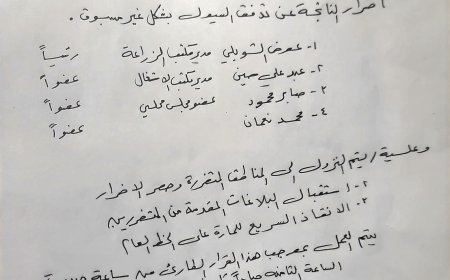 اضرار الناتجة عن تدفق السيول بشكل غير مسبوق.
١- عوض الشوبلي مدير مكتب الزراعة رئيساً
٢- عبد علي حسين مدير مكتب الاشغال عضواً
٣- صابر محمود عضو مجلس محلي عضواً
٤- محمد نعمان عضواً
وعلسية / يتم النزول الى المناطق المتضررة وحصر الاضرار
٢- استقبال البلاغات المقدمة من المتضررين
٣- الانقاذ السريع للمارة على الخط العام
يتم العمل بموجب هذا القرار الطارئ من ساعة
الساعة الثامنة صباحاً